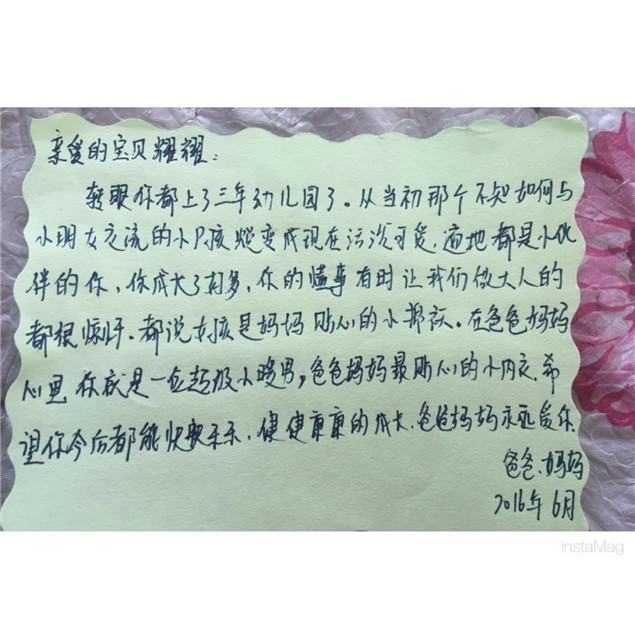 亲爱的宝贝耀耀:
转眼你都上了三年幼儿园了。从当初那个不知如何与
小朋友交流的小P孩蜕变成现在活泼可爱,遍地都是小伙
伴的你,你成长了好多,你的懂事有时让我们做大人的
都很惊讶。都说女孩是妈妈贴心的小棉袄。在爸爸妈妈
心里你就是一位超级小暖男,爸爸妈妈最贴心的小内衣.希
望你今后都能快快乐乐、健健康康的成长.爸爸妈妈永远爱你
爸爸、妈妈
2016年6月
InstaMag